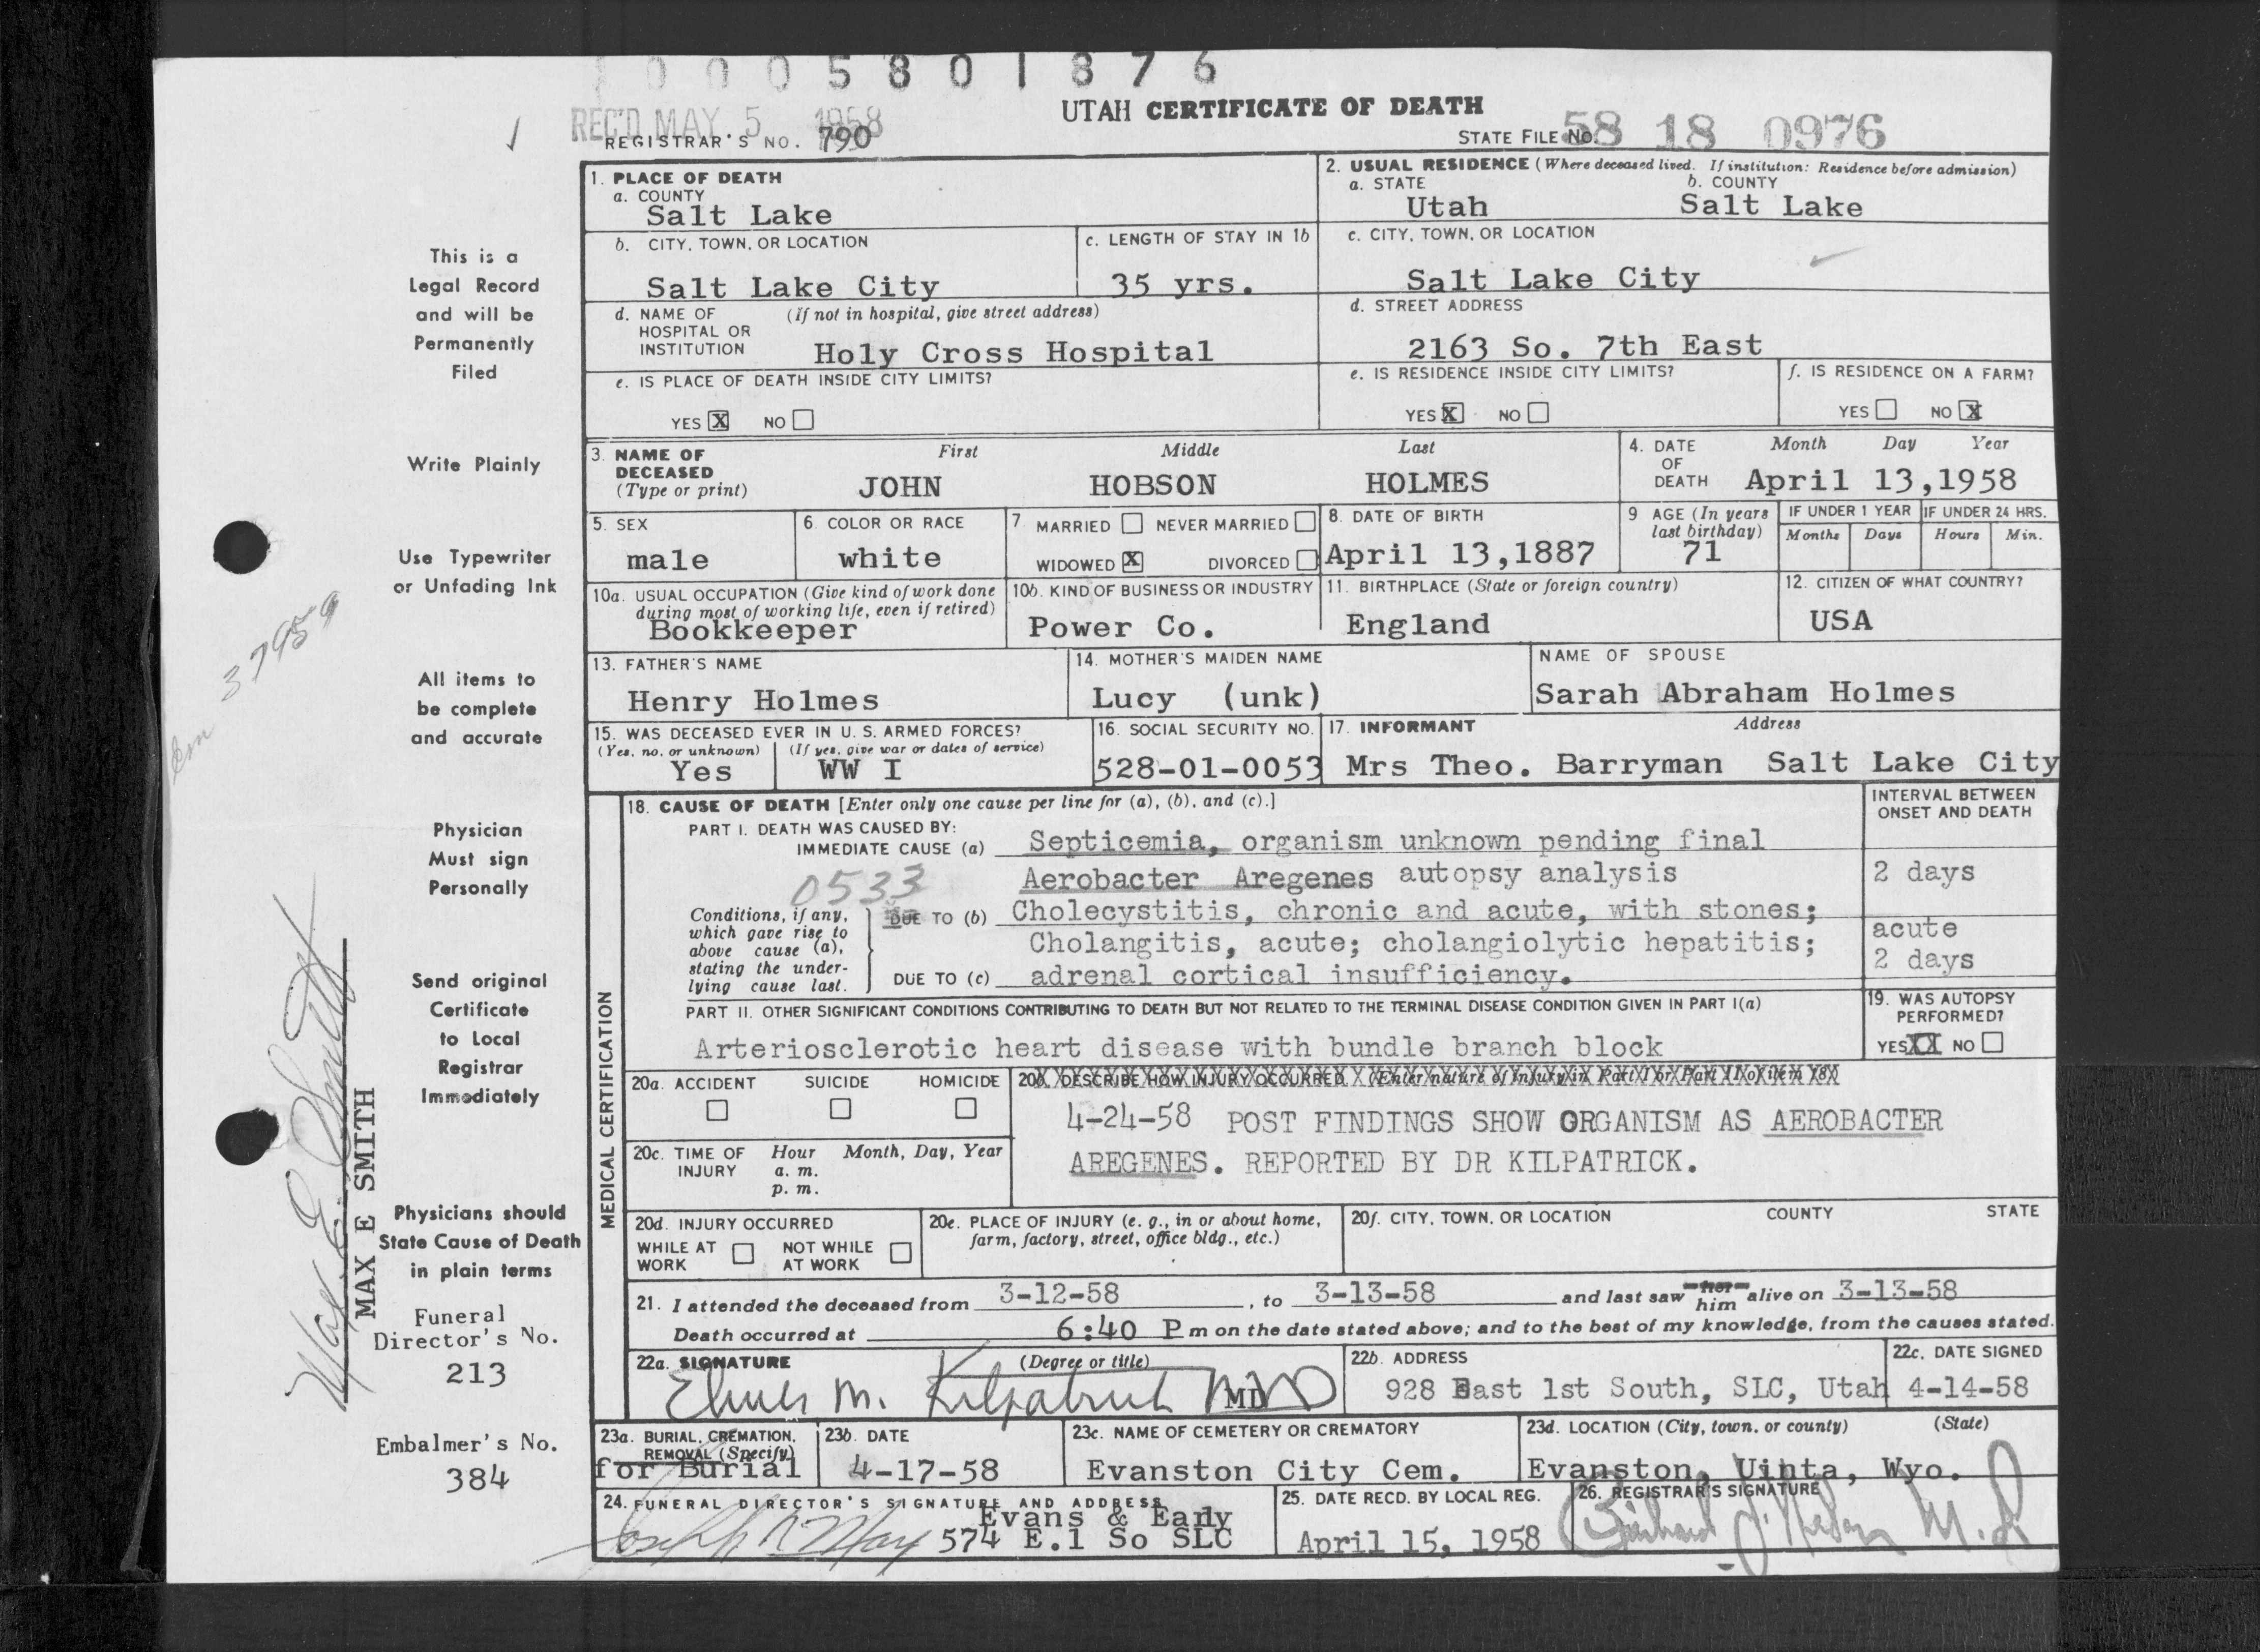 10005801876
REC'D MAY 5 1958
UTAH CERTIFICATE OF DEATH
REGISTRAR'S NO. 790
STATE FILE NO. 58 18 0976
1. PLACE OF DEATH
a. COUNTY
Salt Lake
2. USUAL RESIDENCE (Where deceased lived. If institution: Residence before admission)
a. STATE b. COUNTY
Utah Salt Lake
b. CITY, TOWN, OR LOCATION
Salt Lake City
c. LENGTH OF STAY IN 1b
35 yrs.
c. CITY, TOWN, OR LOCATION
Salt Lake City
d. NAME OF HOSPITAL OR INSTITUTION (If not in hospital, give street address)
Holy Cross Hospital
d. STREET ADDRESS
2163 So. 7th East
e. IS PLACE OF DEATH INSIDE CITY LIMITS?
YES X NO
e. IS RESIDENCE INSIDE CITY LIMITS?
YES X NO
f. IS RESIDENCE ON A FARM?
YES NO X
3. NAME OF DECEASED (Type or print)
First Middle Last
JOHN HOBSON HOLMES
4. DATE OF DEATH Month Day Year
April 13,1958
5. SEX
male
6. COLOR OR RACE
white
7. MARRIED NEVER MARRIED
WIDOWED X DIVORCED
8. DATE OF BIRTH
April 13,1887
9 AGE (In years last birthday)
71
IF UNDER 1 YEAR IF UNDER 24 HRS.
Months Days Hours Min.
10a. USUAL OCCUPATION (Give kind of work done during most of working life, even if retired)
Bookkeeper
10b. KIND OF BUSINESS OR INDUSTRY
Power Co.
11. BIRTHPLACE (State or foreign country)
England
12. CITIZEN OF WHAT COUNTRY?
USA
13. FATHER'S NAME
Henry Holmes
14. MOTHER'S MAIDEN NAME
Lucy (unk)
NAME OF SPOUSE
Sarah Abraham Holmes
15. WAS DECEASED EVER IN U. S. ARMED FORCES?
(Yes, no, or unknown) (If yes, give war or dates of service)
Yes WW I
16. SOCIAL SECURITY NO.
528-01-0053
17. INFORMANT Address
Mrs Theo. Barryman Salt Lake City
18. CAUSE OF DEATH [Enter only one cause per line for (a), (b), and (c).]
INTERVAL BETWEEN ONSET AND DEATH
PART I. DEATH WAS CAUSED BY:
IMMEDIATE CAUSE (a) Septicemia, organism unknown pending final
0533 Aerobacter Aregenes autopsy analysis 2 days
Conditions, if any, which gave rise to above cause (a), stating the underlying cause last.
DUE TO (b) Cholecystitis, chronic and acute, with stones; acute
Cholangitis, acute; cholangiolytic hepatitis; 2 days
DUE TO (c) adrenal cortical insufficiency.
PART II. OTHER SIGNIFICANT CONDITIONS CONTRIBUTING TO DEATH BUT NOT RELATED TO THE TERMINAL DISEASE CONDITION GIVEN IN PART I(a)
Arteriosclerotic heart disease with bundle branch block
19. WAS AUTOPSY PERFORMED?
YES XX NO
MEDICAL CERTIFICATION
20a. ACCIDENT SUICIDE HOMICIDE
20b. DESCRIBE HOW INJURY OCCURRED (Enter nature of injury in Part I or Part II of item 18)
4-24-58 POST FINDINGS SHOW ORGANISM AS AEROBACTER
AREGENES. REPORTED BY DR KILPATRICK.
20c. TIME OF INJURY Hour Month, Day, Year
a. m.
p. m.
20d. INJURY OCCURRED
WHILE AT WORK NOT WHILE AT WORK
20e. PLACE OF INJURY (e. g., in or about home, farm, factory, street, office bldg., etc.)
20f. CITY, TOWN, OR LOCATION COUNTY STATE
21. I attended the deceased from 3-12-58, to 3-13-58 and last saw her him alive on 3-13-58
Death occurred at 6:40 P m on the date stated above; and to the best of my knowledge, from the causes stated.
22a. SIGNATURE (Degree or title)
Elmer M. Kilpatrick MD MD
22b. ADDRESS
928 East 1st South, SLC, Utah
22c. DATE SIGNED
4-14-58
23a. BURIAL, CREMATION, REMOVAL (Specify)
for Burial
23b. DATE
4-17-58
23c. NAME OF CEMETERY OR CREMATORY
Evanston City Cem.
23d. LOCATION (City, town, or county) (State)
Evanston, Uinta, Wyo.
24. FUNERAL DIRECTOR'S SIGNATURE AND ADDRESS
Evans & Early
574 E.1 So SLC
25. DATE RECD. BY LOCAL REG.
April 15, 1958
26. REGISTRAR'S SIGNATURE
M.D
This is a
Legal Record
and will be
Permanently
Filed
Write Plainly
Use Typewriter
or Unfading Ink
All items to
be complete
and accurate
Physician
Must sign
Personally
Send original
Certificate
to Local
Registrar
Immediately
Physicians should
State Cause of Death
in plain terms
Funeral
Director's No.
213
Embalmer's No.
384
Max E. Smith
MAX E SMITH
37959